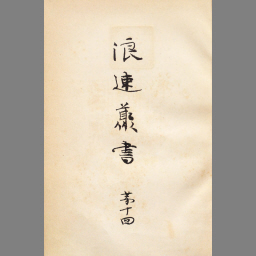 浪速叢書
第十四